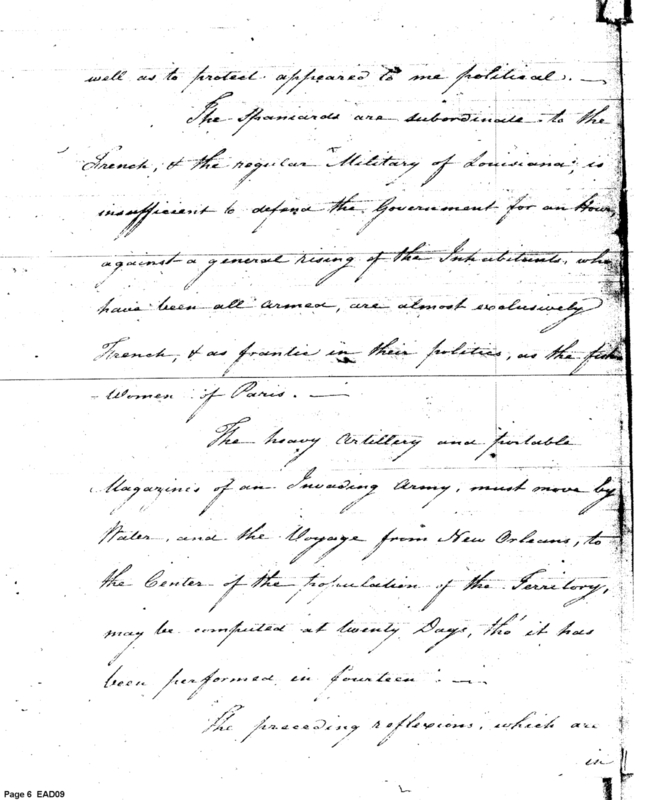 well as to protect appeared to me political. —
The Spaniards are subordinate to the
French, & the regular Military of Louisiana, is
insufficient to defend the Government for an Hour,
against a general rising of the Inhabitants, who
have been all armed, are almost exclusively
French, & as frantic in their politics, as the fish
Women of Paris. —
The heavy Artillery and portable
Magazines of an Invading Army, must move by
Water, and the Voyage from New Orleans, to
the Center of the population of the Territory,
may be computed at twenty Days, tho' it has
been performed in fourteen : —
The preceding reflexions, which are
in
Page 6 EAD09